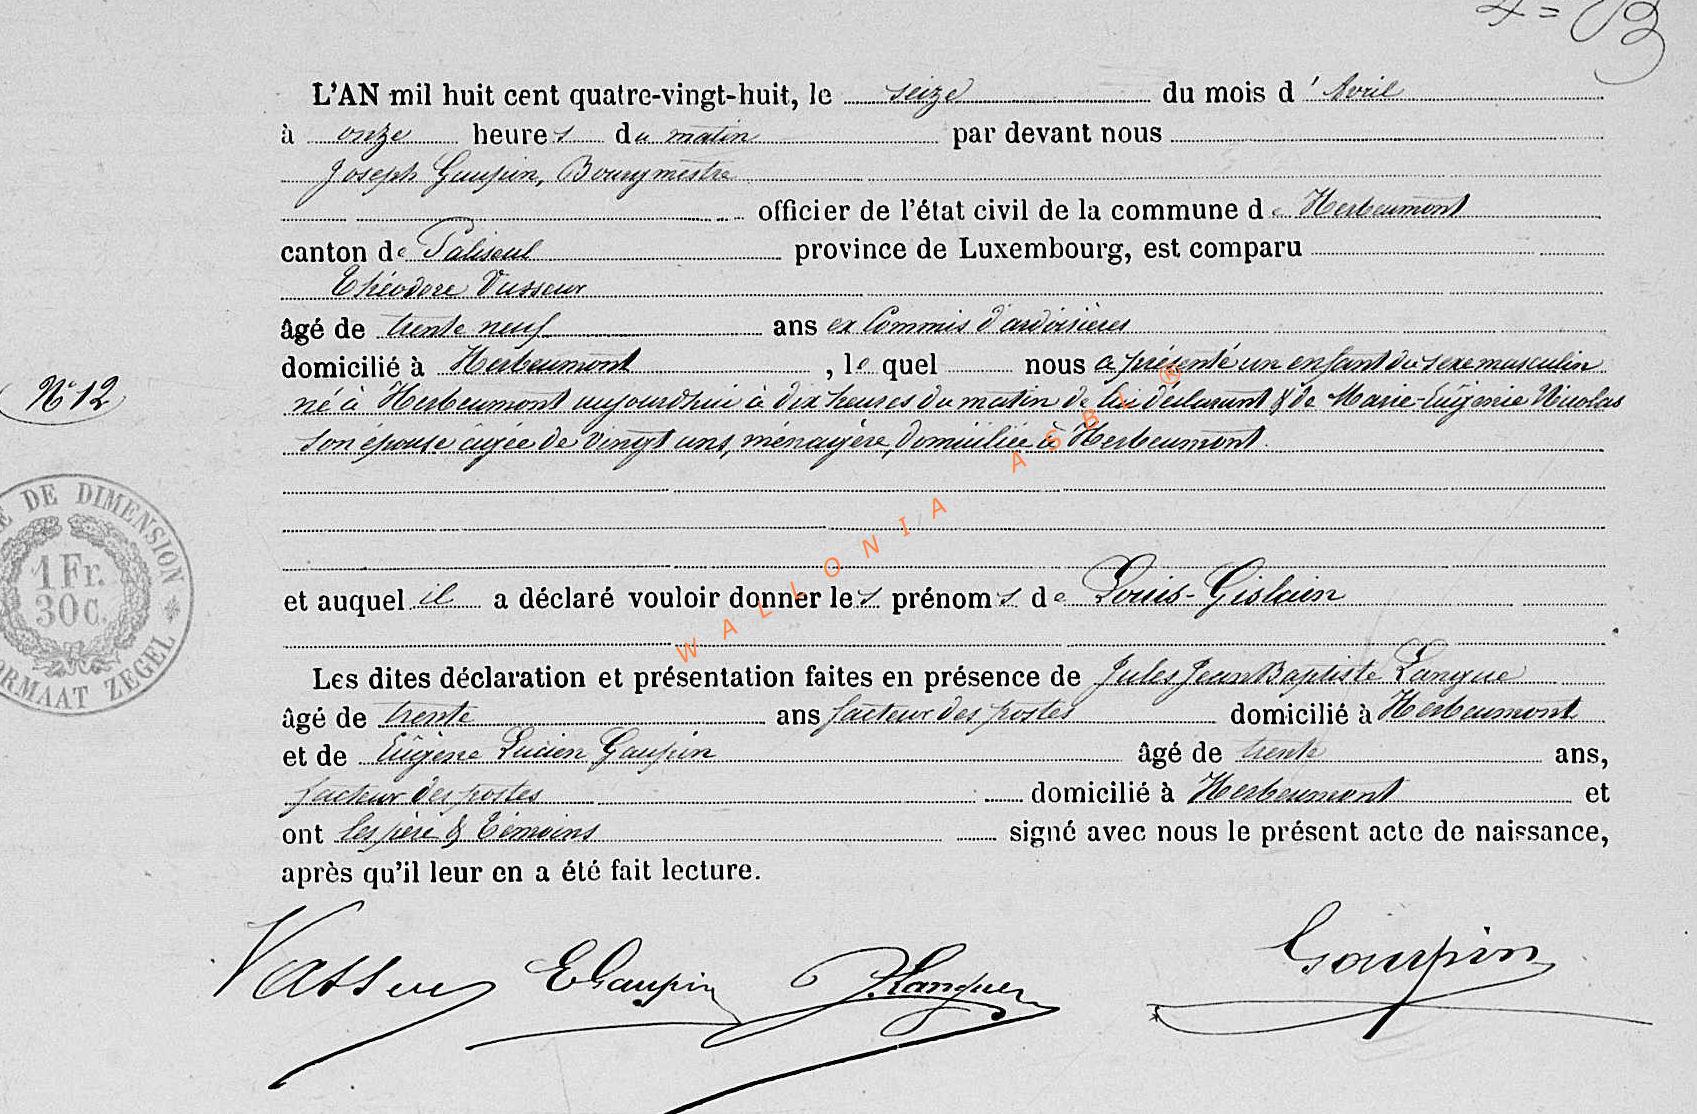 4 = 03
L'AN mil huit cent quatre-vingt-huit, le seize du mois d'Avril
à onze heures du matin par devant nous
Joseph Gaupin, Bourgmestre
officier de l'état civil de la commune de Herbeumont
canton de Paliseul province de Luxembourg, est comparu
Théodore Vasseur
âgé de trente neuf ans ex Commis d'ardoisières
domicilié à Herbeumont, lequel nous a présenté un enfant du sexe masculin
N° 12
né à Herbeumont aujourdhui à dix heures du matin de lui déclarant & de Marie-Eugénie Nicolas
son épouse agée de vingt ans, ménagère, domiciliée à Herbeumont.
DE DIMENSION
1 Fr.
30 C.
FORMAAT ZEGEL
et auquel il a déclaré vouloir donner les prénoms de Louis-Gislain
Les dites déclaration et présentation faites en présence de Jules Jean Baptiste Langue
âgé de trente ans facteur des postes domicilié à Herbeumont
et de Eugène Lucien Gaupin âgé de trente ans,
facteur des postes domicilié à Herbeumont et
ont les père & témoins signé avec nous le présent acte de naissance,
après qu'il leur en a été fait lecture.
Vasseur EGaupin J.Langue Gaupin
WALLONIA ASBL ®